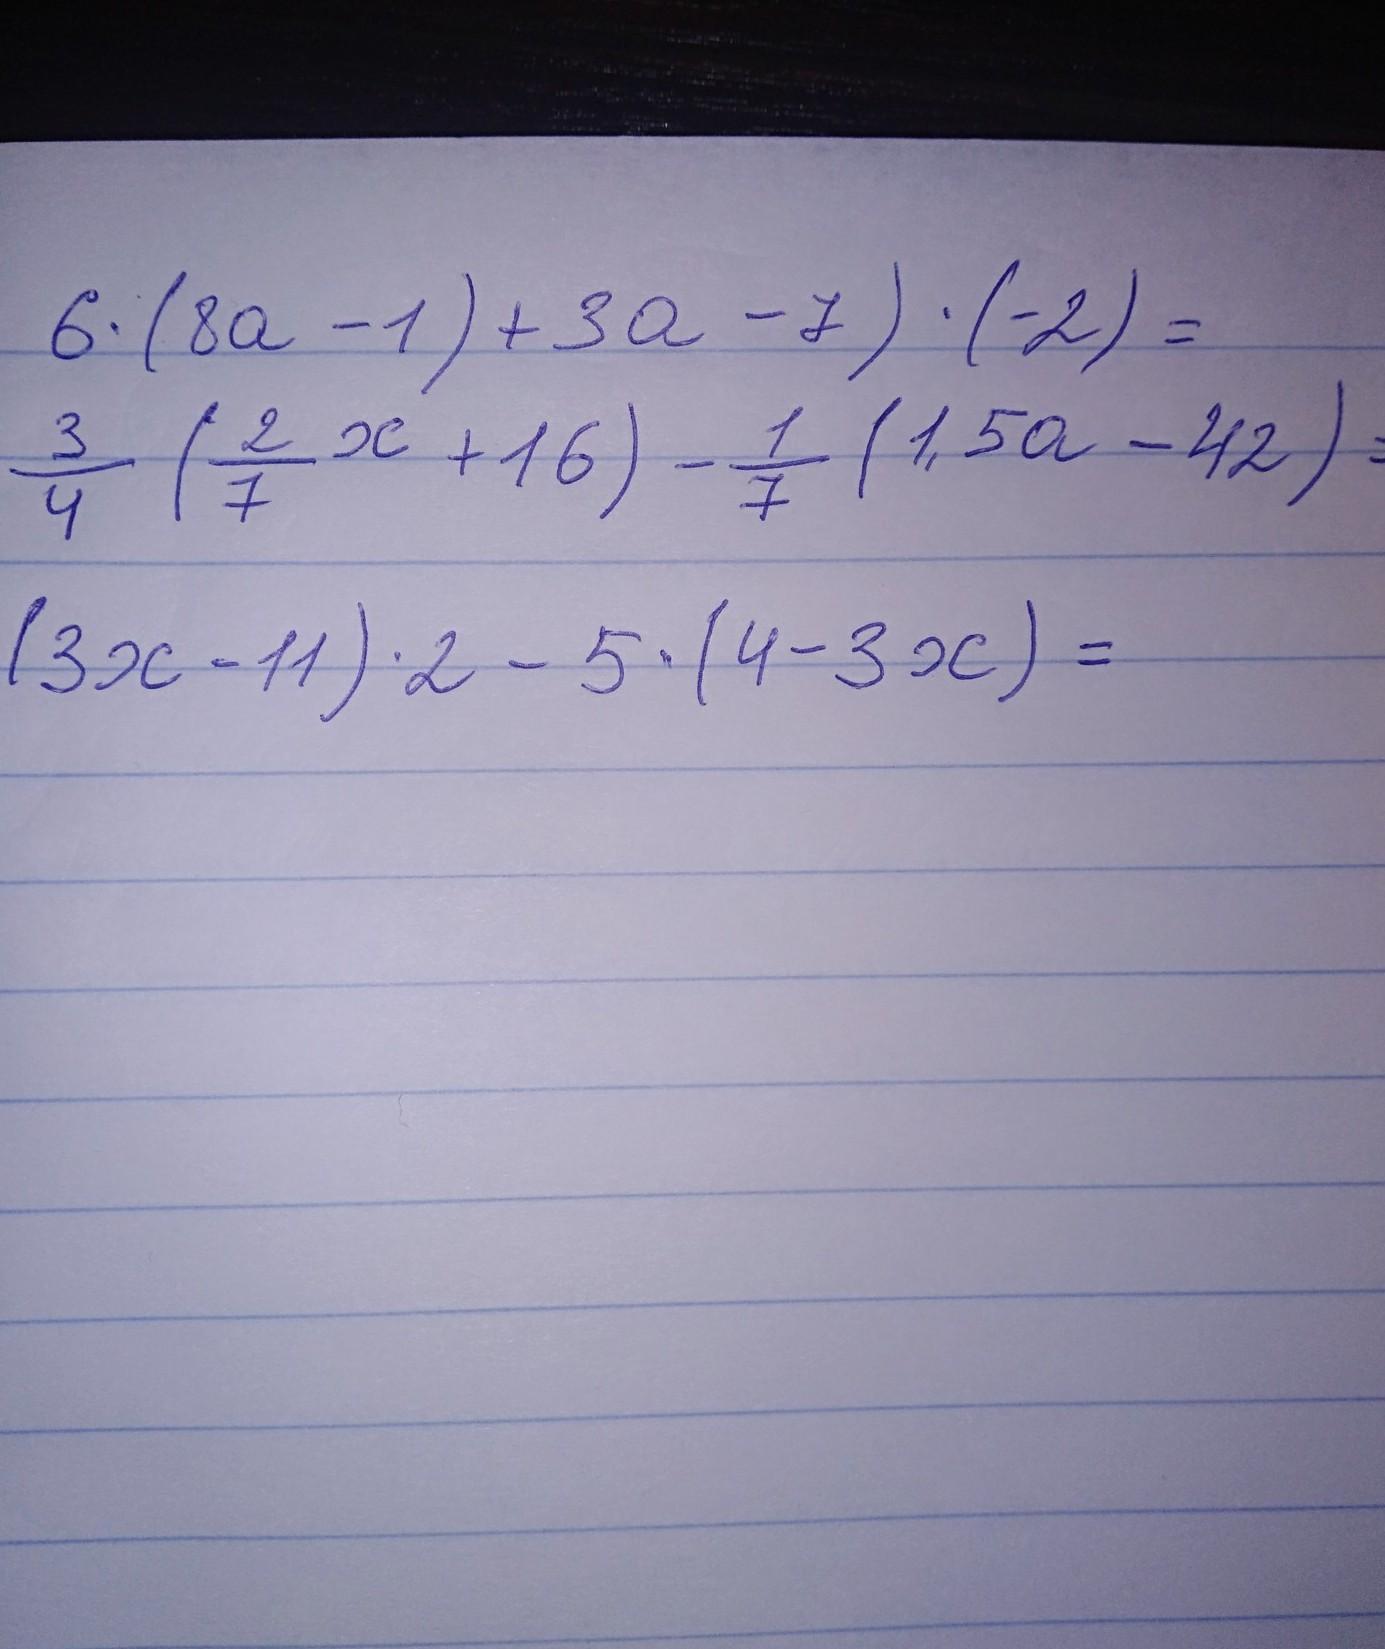 6·(8a-1)+3a-7)·(-2)=
3/4 (2/7 x +16) - 1/7 (1,5a-42)=
(3x-11)·2-5·(4-3x)=